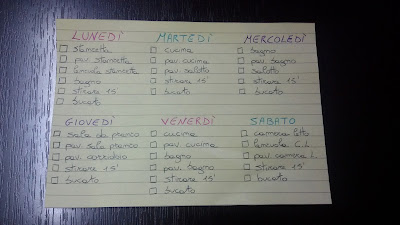 LUNEDÌ
□ stanzetta
□ pav stanzetta
□ lenzuola stanzetta
□ bagno
□ stirare 15'
□ bucato
MARTEDÌ
□ cucina
□ pav cucina
□ pav salotto
□ stirare 15'
□ bucato
MERCOLEDÌ
□ bagno
□ pav. bagno
□ salotto
□ stirare 15'
□ bucato
GIOVEDÌ
□ sala da pranzo
□ pav sala pranzo
□ pav. corridoio
□ stirare 15'
□ bucato
VENERDÌ
□ cucina
□ pav. cucina
□ bagno
□ pav. bagno
□ stirare 15'
□ bucato
SABATO
□ camera letto
□ lenzuola C.L.
□ pav camera L.
□ stirare 15'
□ bucato